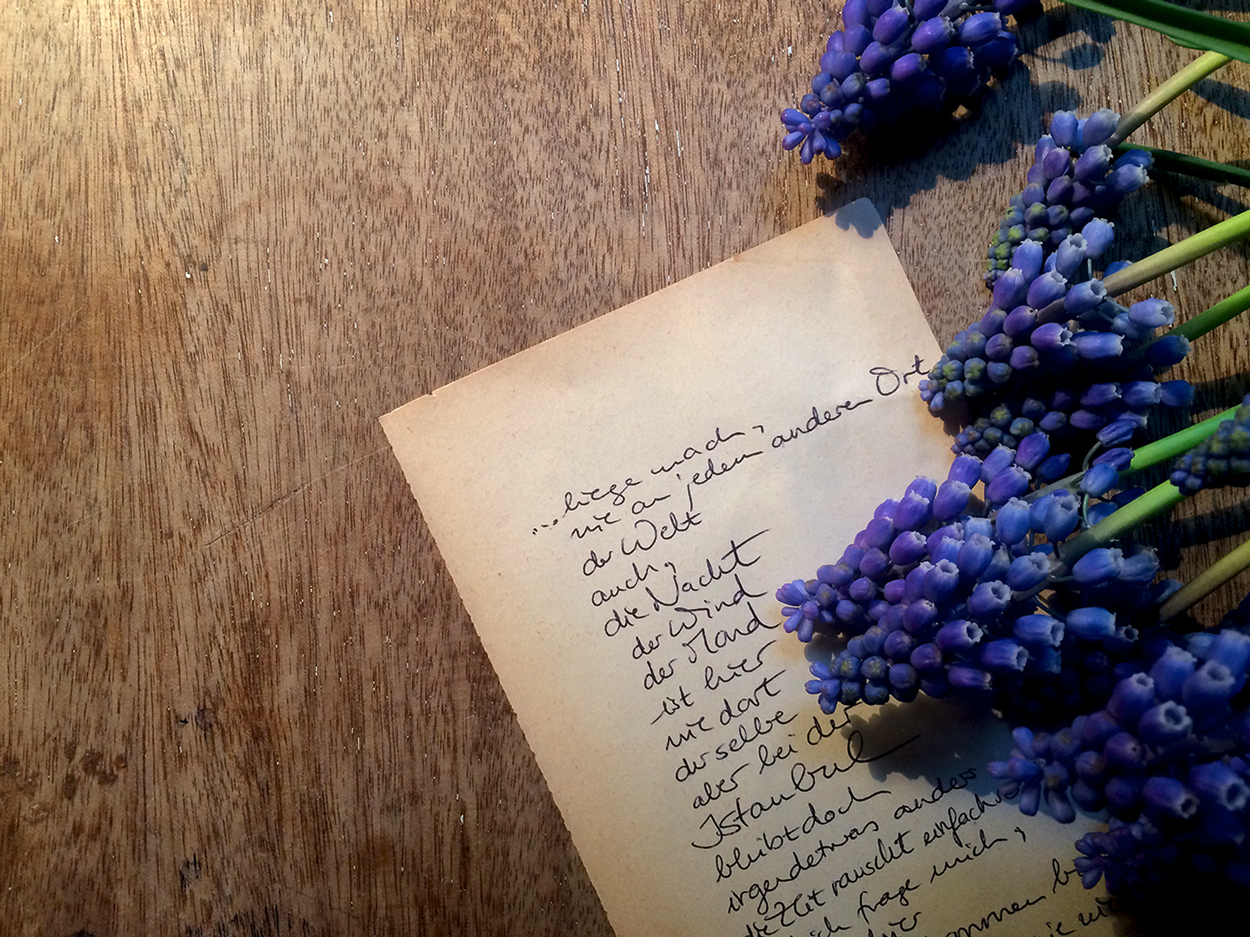 ...liege wach,
wie an jedem anderen Ort
der Welt
auch,
die Nacht
der Wind
der Mond
ist hier
wie dort
derselbe
aber bei der
Istanbul
bleibt doch
irgendetwas anders
die Zeit rauscht einfach
ich frage mich,
hier